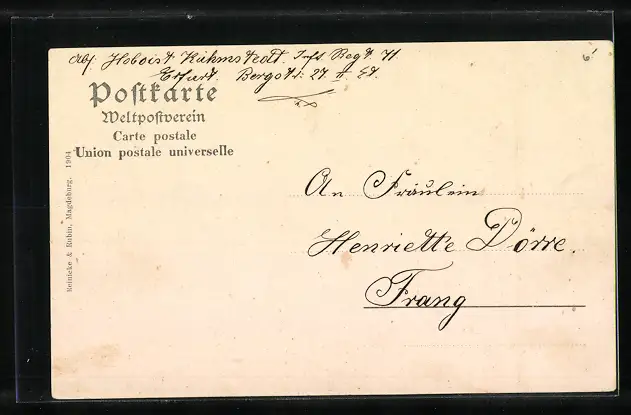 Abs. Hoboist Kühmstedt. Inft. Regt. 71
Erfurt. Bergstr. 27 II Et.
Postkarte
Weltpostverein
Carte postale
Union postale universelle
Reinicke & Rubin, Magdeburg. 1904
An Fräulein
Henriette Dörre.
Frang